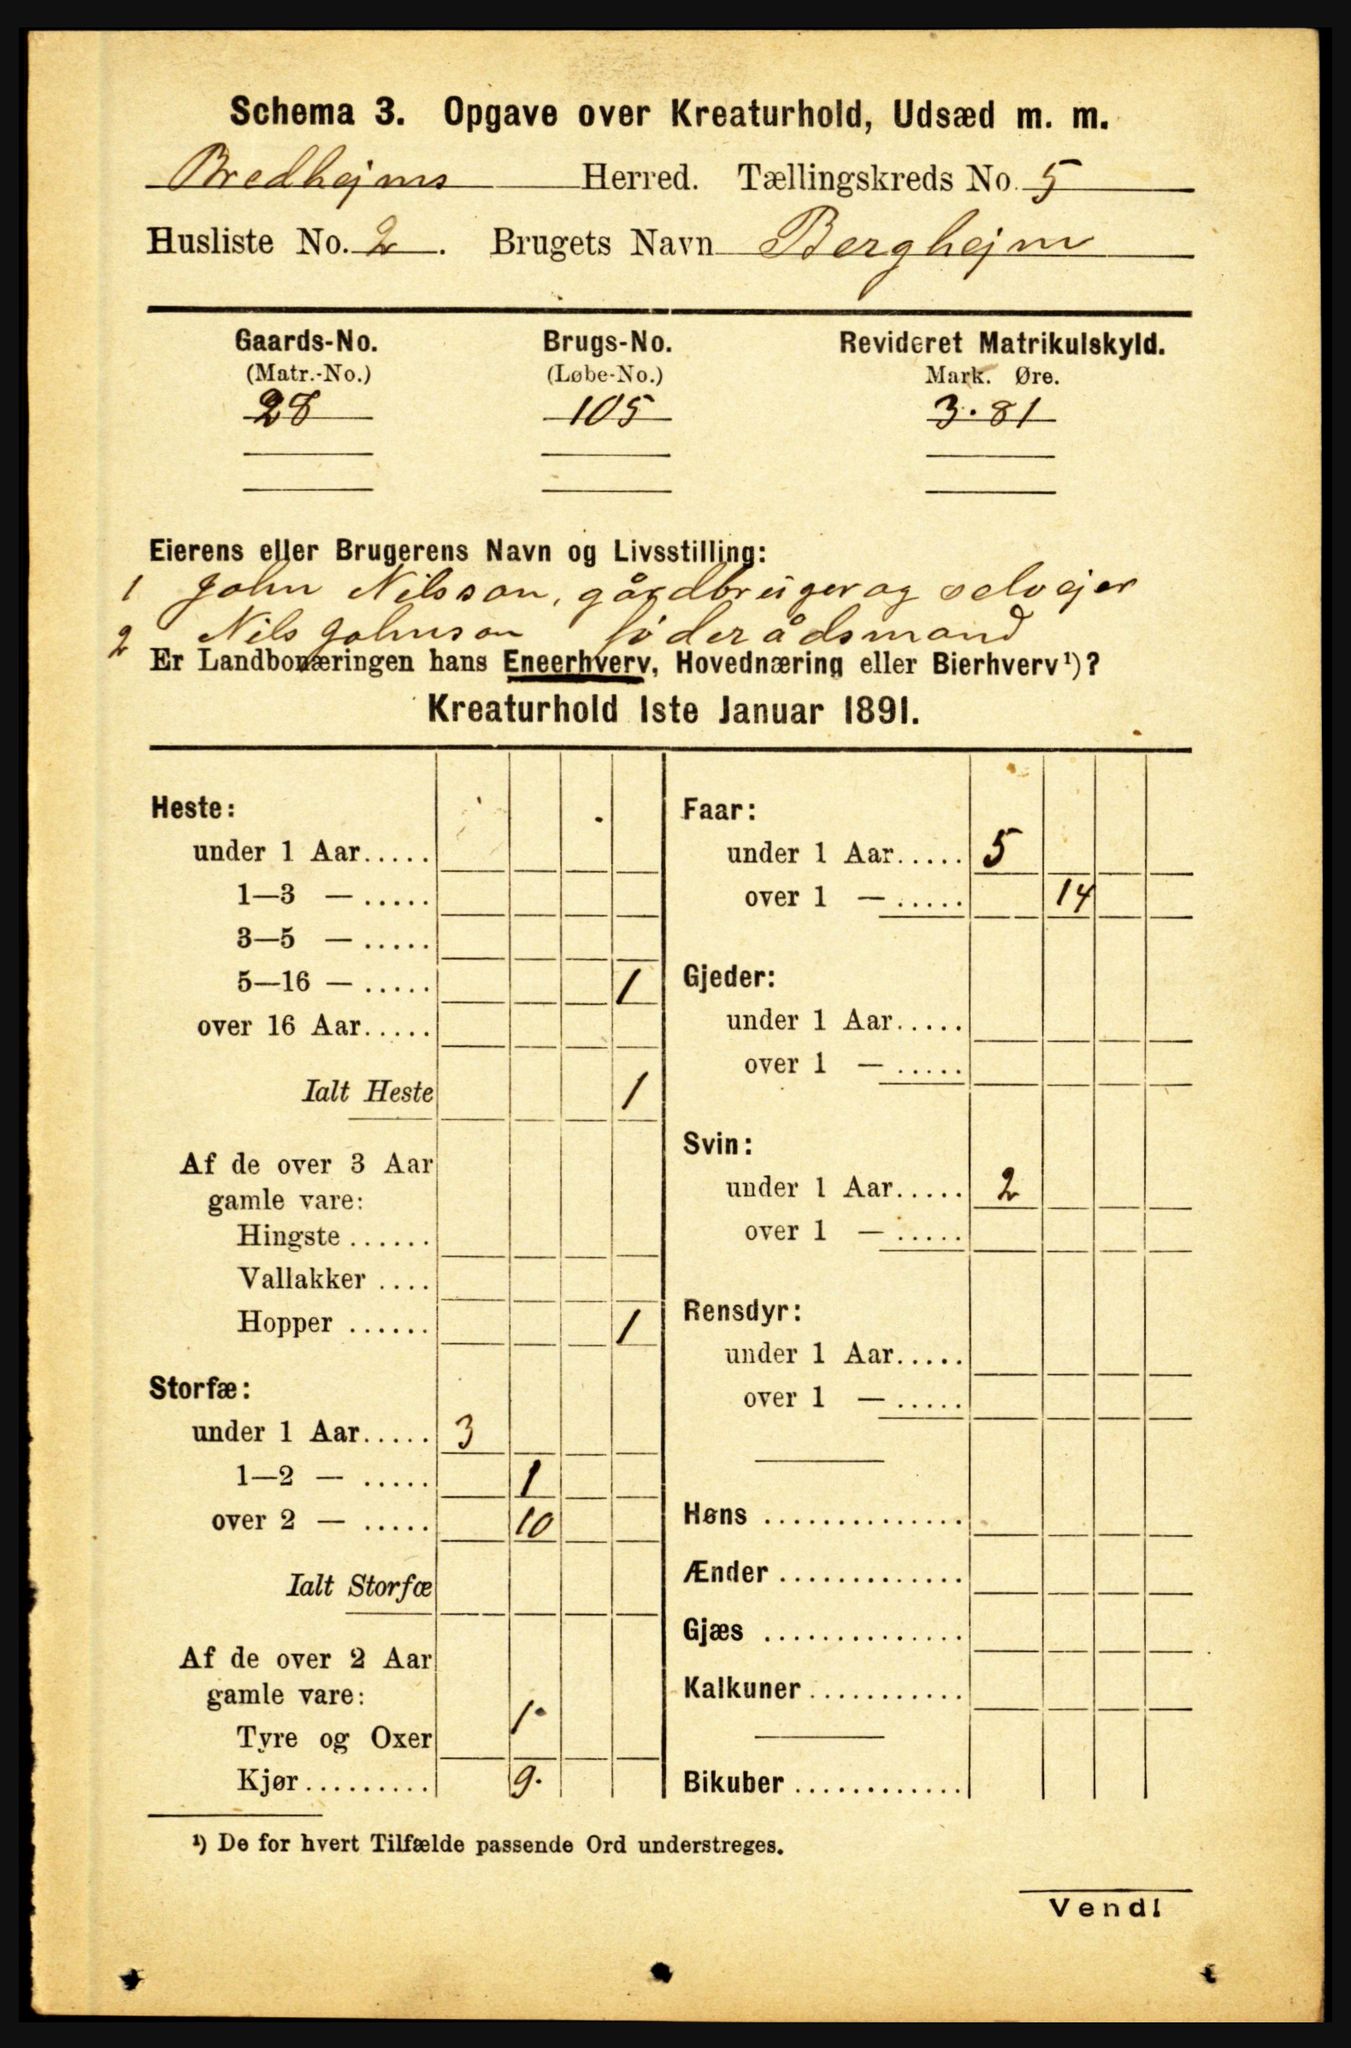 Schema 3. Opgave over Kreaturhold, Udsæd m. m.
Bredhejms Herred. Tællingskreds No. 5
Husliste No. 2. Brugets Navn Berghejm
Gaards-No. Brugs-No. Revideret Matrikulskyld.
(Matr.-No.) (Løbe-No.) Mark. Øre.
28 105 3.81
Eierens eller Brugerens Navn og Livsstilling:
1 John Nilsson, gårdbruger og selvejer
2 Nils Johnson føderådsmand
Er Landbonæringen hans Eneerhverv, Hovednæring eller Bierhverv¹)?
Kreaturhold 1ste Januar 1891.
Heste:
under 1 Aar.....
1—3 — .....
3—5 — .....
5—16 — ..... 1
over 16 Aar.....
Ialt Heste 1
Af de over 3 Aar
gamle vare:
Hingste ......
Vallakker ....
Hopper ...... 1
Storfæ:
under 1 Aar..... 3
1—2 — ..... 1
over 2 — ..... 10
Ialt Storfæ
Af de over 2 Aar
gamle vare:
Tyre og Oxer 1.
Kjør......... 9.
Faar:
under 1 Aar..... 5
over 1 — ..... 14
Gjeder:
under 1 Aar.....
over 1 — .....
Svin:
under 1 Aar..... 2
over 1 — .....
Rensdyr:
under 1 Aar.....
over 1 — .....
Høns ..............
Ænder .............
Gjæs ..............
Kalkuner ...........
Bikuber .............
¹) De for hvert Tilfælde passende Ord understreges.
Vend!